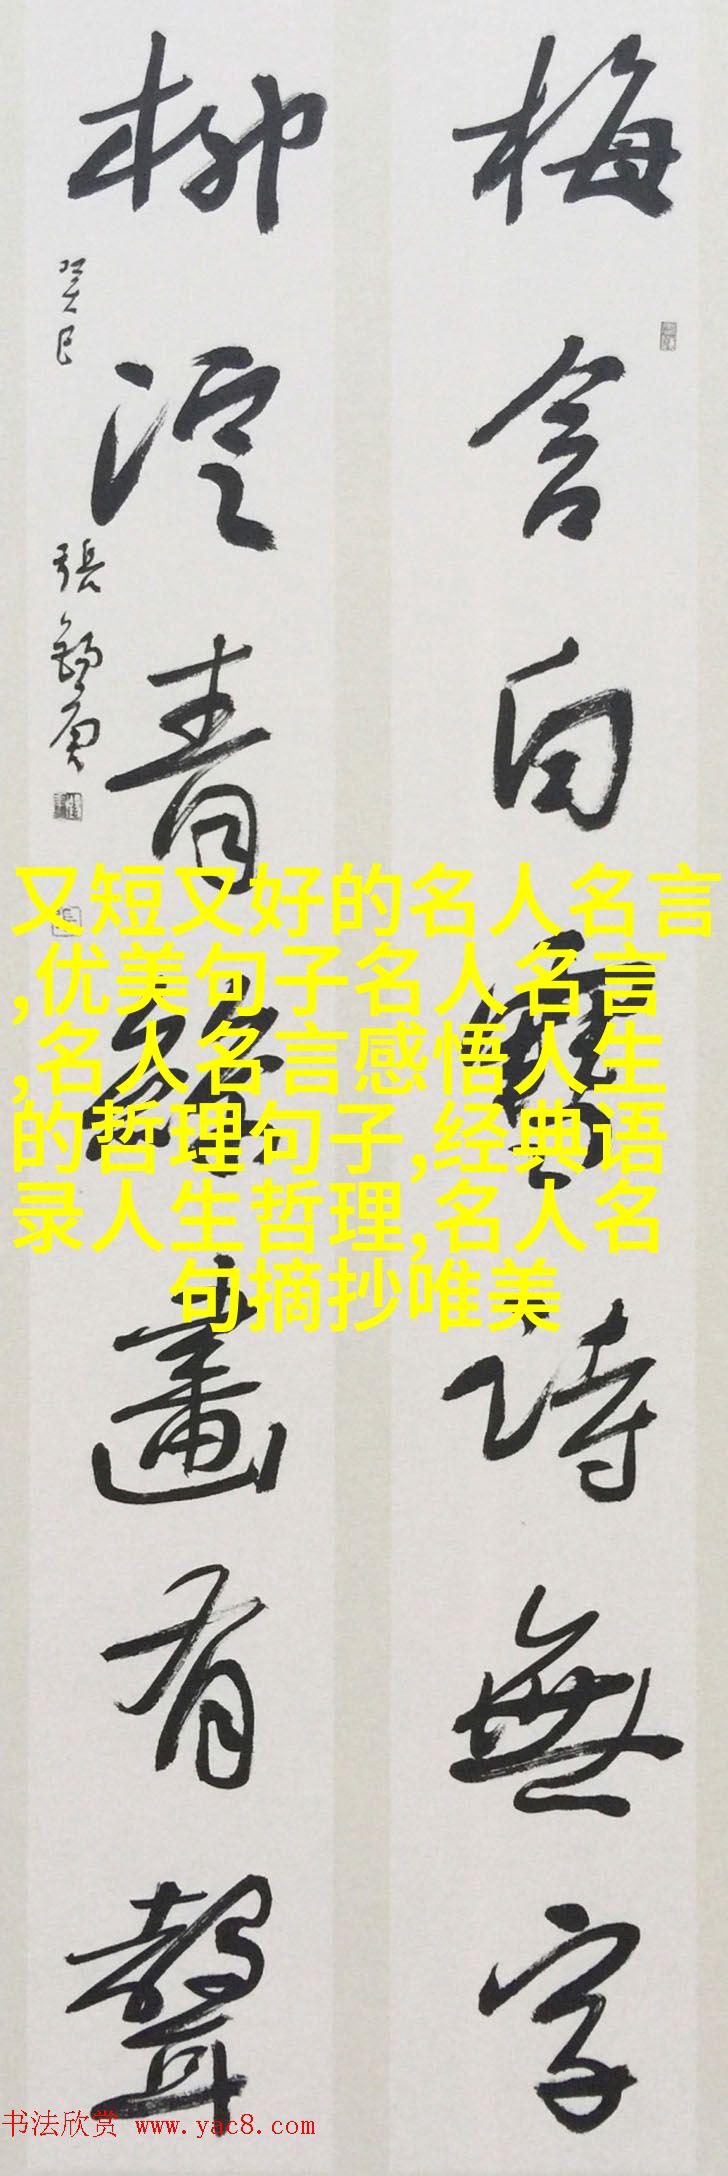 梅含白雪詩無字
柳浥青絲畫有聲
癸巳
張錫庚
又短又好的名人名言
,优美句子名人名言
,名人名言感悟人生
的哲理句子,经典语
录人生哲理,名人名
句摘抄唯美
书法欣赏 www.yac8.com